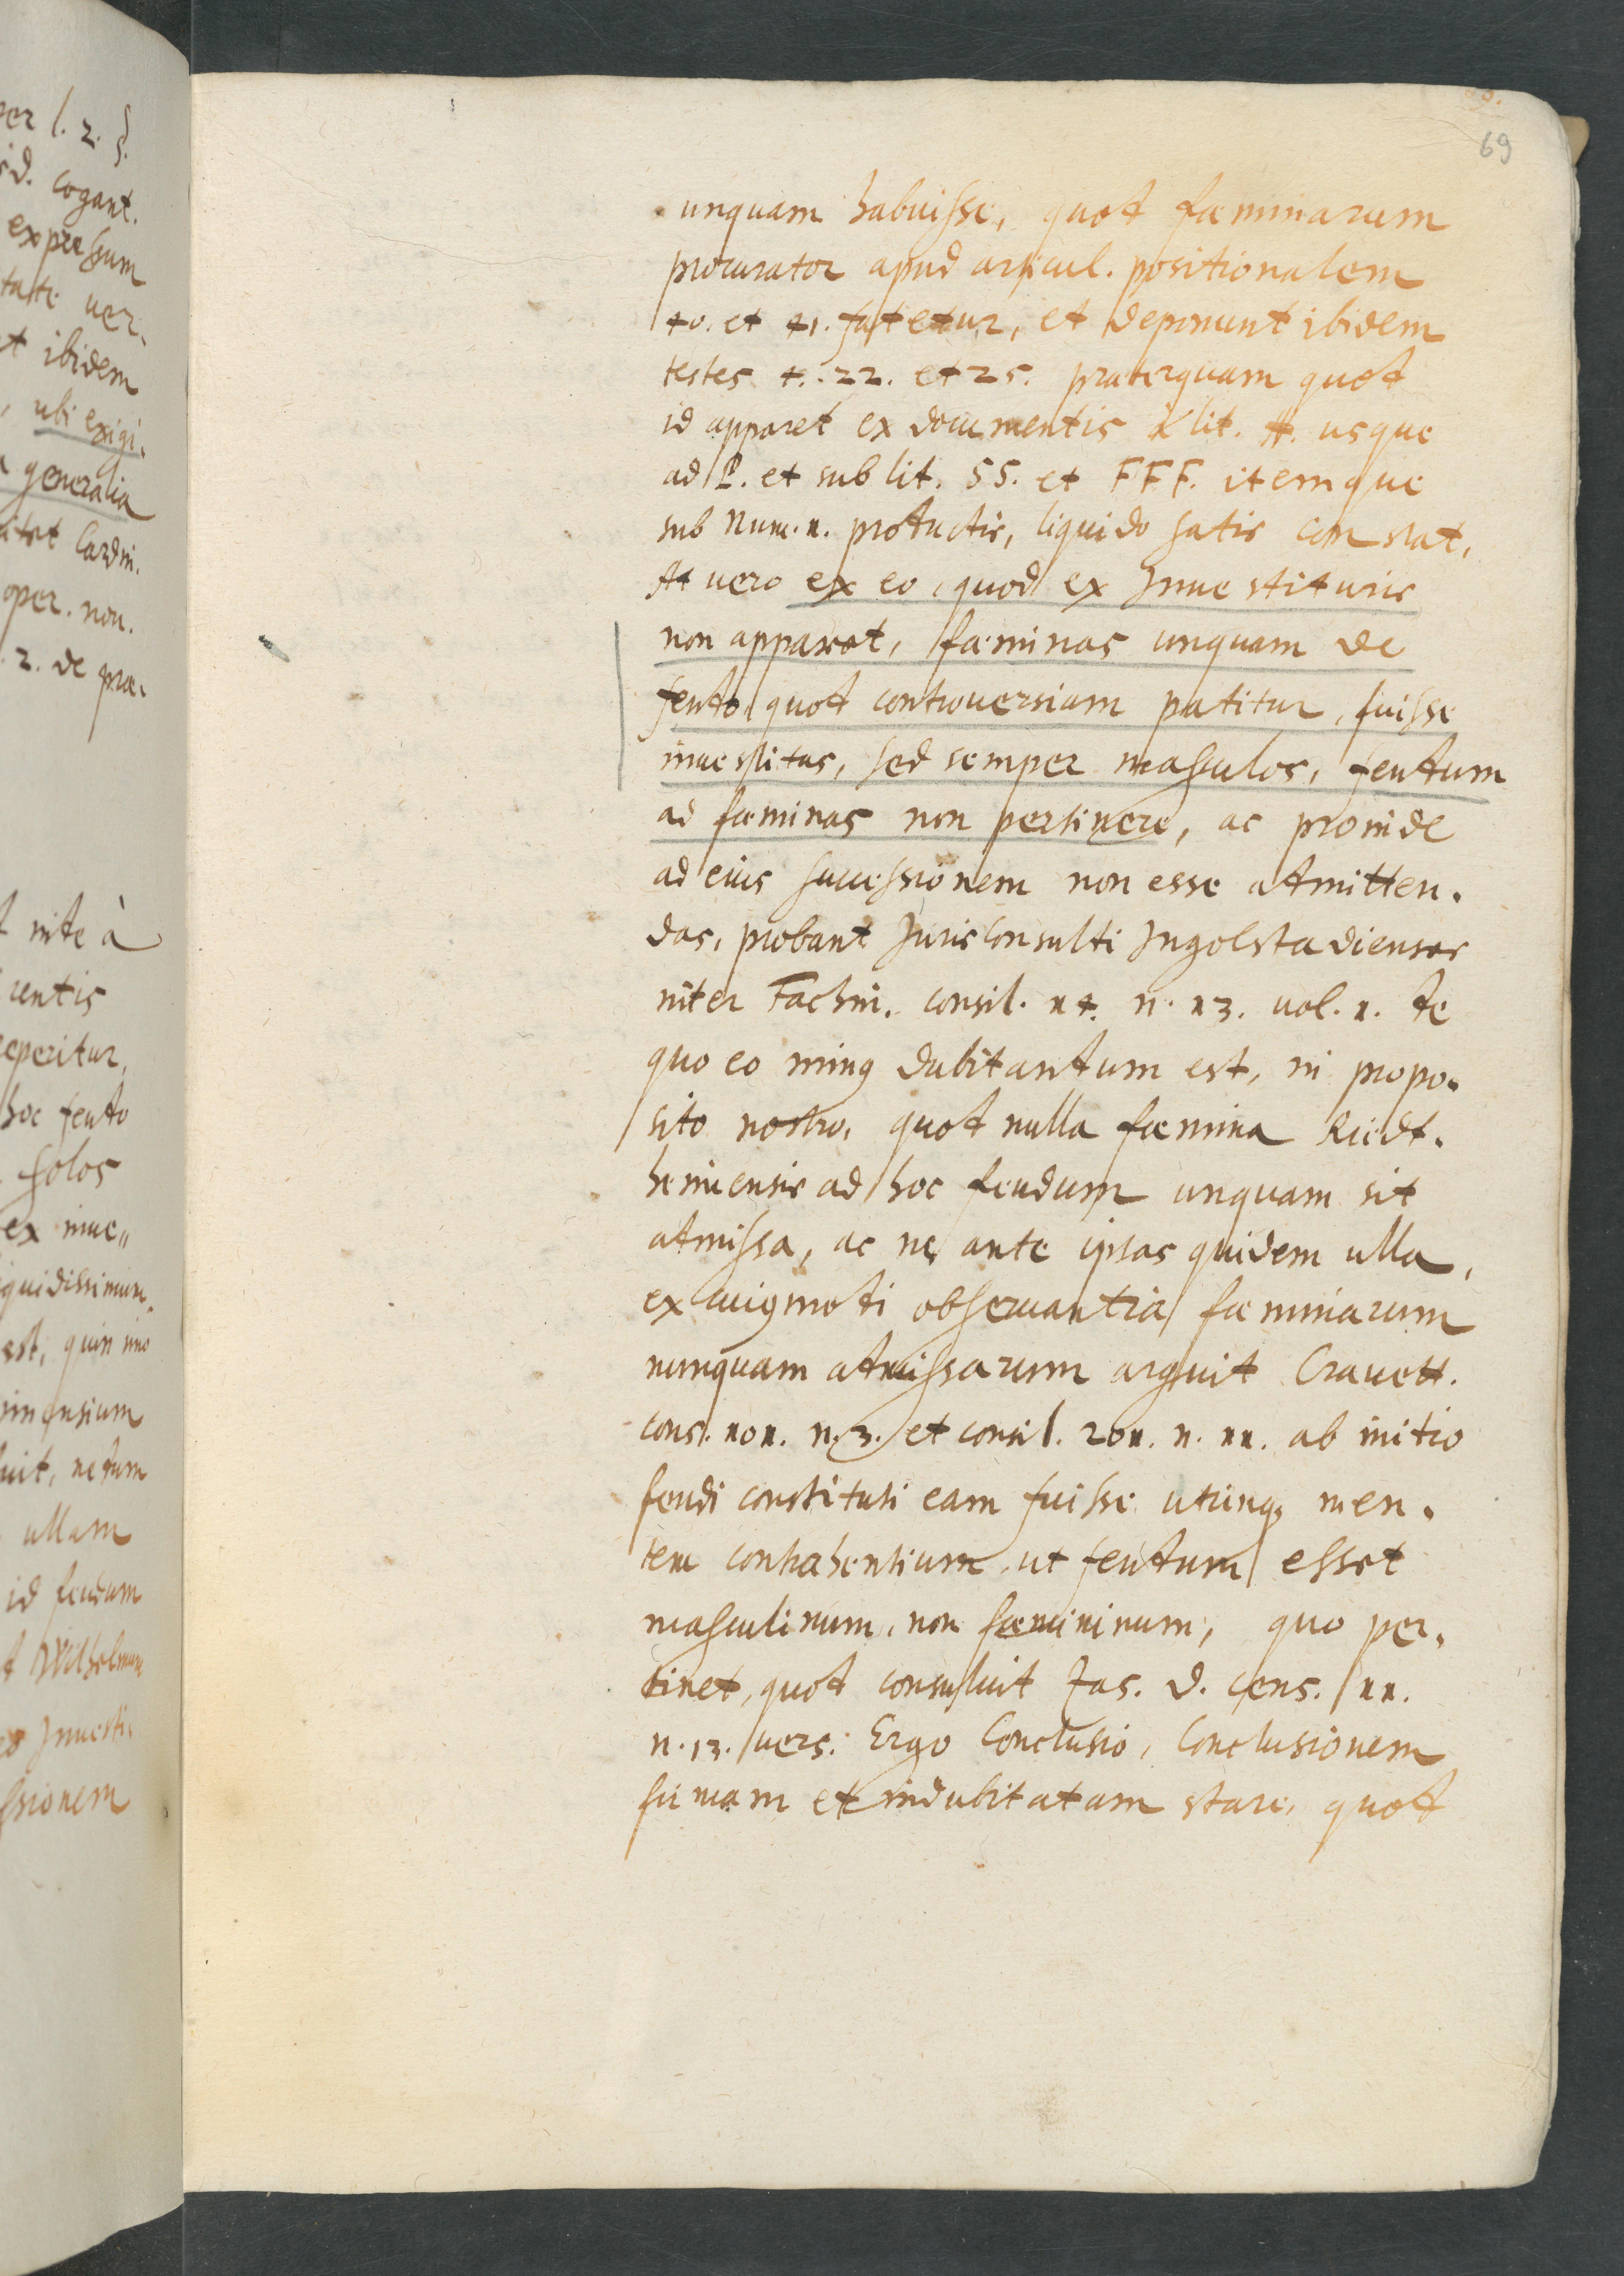 69
unquam habuisse, quod fœminarum
procurator apud articul. positionalem
40. et 41. fatetur, et deponunt ibidem
testes 4. 22. et 25. præterquam quod
id apparet ex documentis lit. A. usque
ad P. et sub lit. SS. et FFF. itemque
sub Num. 1. productis, liquido satis constat,
At vero ex eo, quod ex Inuestituris
non apparet, fœminas unquam de
feudo quod controuersiam patitur, fuisse
inuestitas, sed semper masculos, feudum
ad fœminas non pertinere, ac proinde
ad eius successionem non esse admitten-
das, probant Jurisconsulti Ingolstadienses
inter Fachin. consil. 14. n. 13. vol. 1. de
quo eo minus dubitandum est, in propo-
sito nostro, quod nulla fœmina Riedt-
heimensis ad hoc feudum unquam sit
admissa, ac ne ante ipsas quidem ulla,
ex cuiusmodi obseruantia fœminarum
nunquam admissarum arguit Crauett.
cons. 101. n. 3. et consil. 201. n. 11. ab initio
feudi constituti eam fuisse utriusq; men-
tem contrahentium, ut feudum esset
masculinum, non fœmininum, quo per-
tinet, quod consuluit Jas. d. cons. 11.
n. 13. vers. Ergo Conclusio, Conclusionem
firmam et indubitatam stare, quod
er l. 2. §.
cogant.
expressum
ver-
t ibidem
, ubi exigi-
generalia
Cardin.
oper. non.
2. de præ-
inde à
rentis
eperitur,
hoc feudo
solos
ex inue„
quidissimum
est, quin imo
imensium
uit, nedum
ullam
id feudum
Wilhelmum
Inuesti-
ssionem